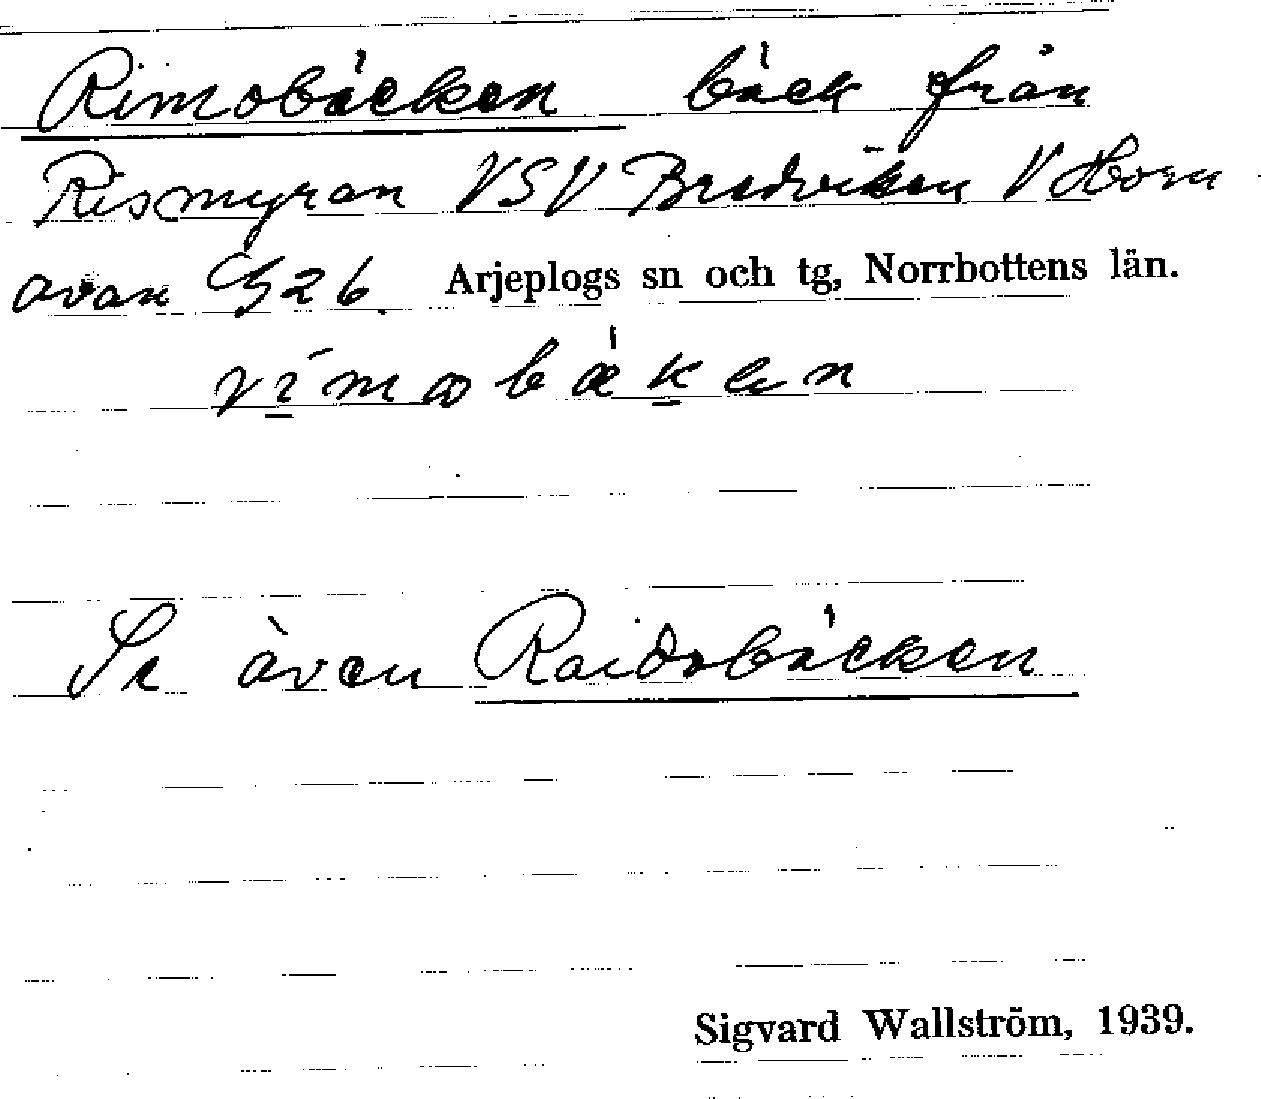 Rimobäcken bäck från
Rismyran VSV Bredviken V Horn
avan G26 Arjeplogs sn och tg, Norrbottens län.
Se även Raidobäcken
Sigvard Wallström, 1939.